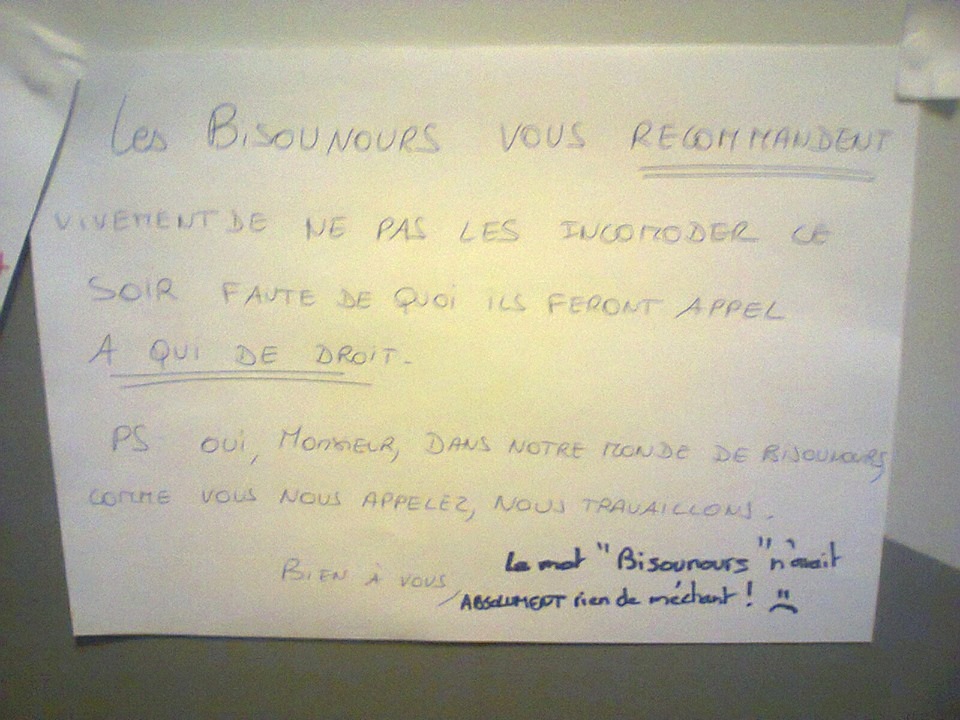 Les BISOUNOURS VOUS RECOMMANDENT
VIVEMENT DE NE PAS LES INCOMODER CE
SOIR FAUTE DE QUOI ILS FERONT APPEL
A QUI DE DROIT.
PS OUI, MONSIEUR, DANS NOTRE MONDE DE BISOUNOURS,
COMME VOUS NOUS APPELEZ, NOUS TRAVAILLONS.
BIEN À VOUS,
Le mot "Bisounours" n'avait
ABSOLUMENT rien de méchant !